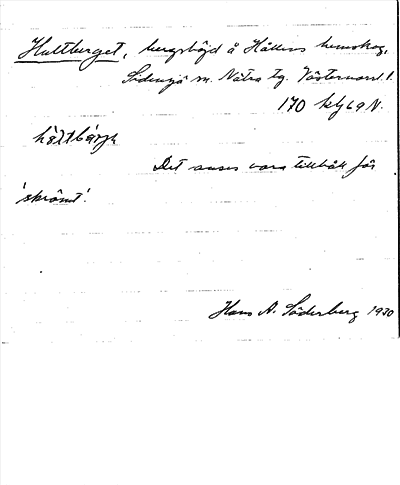 Hultberget, bergshöjd å Håkans hemskog,
Sidensjö sn. Nätra tg. Västernorrl. l.
170
Det anses vara tillhåll för
'skrömt'.
Hans A. Söderberg 1930